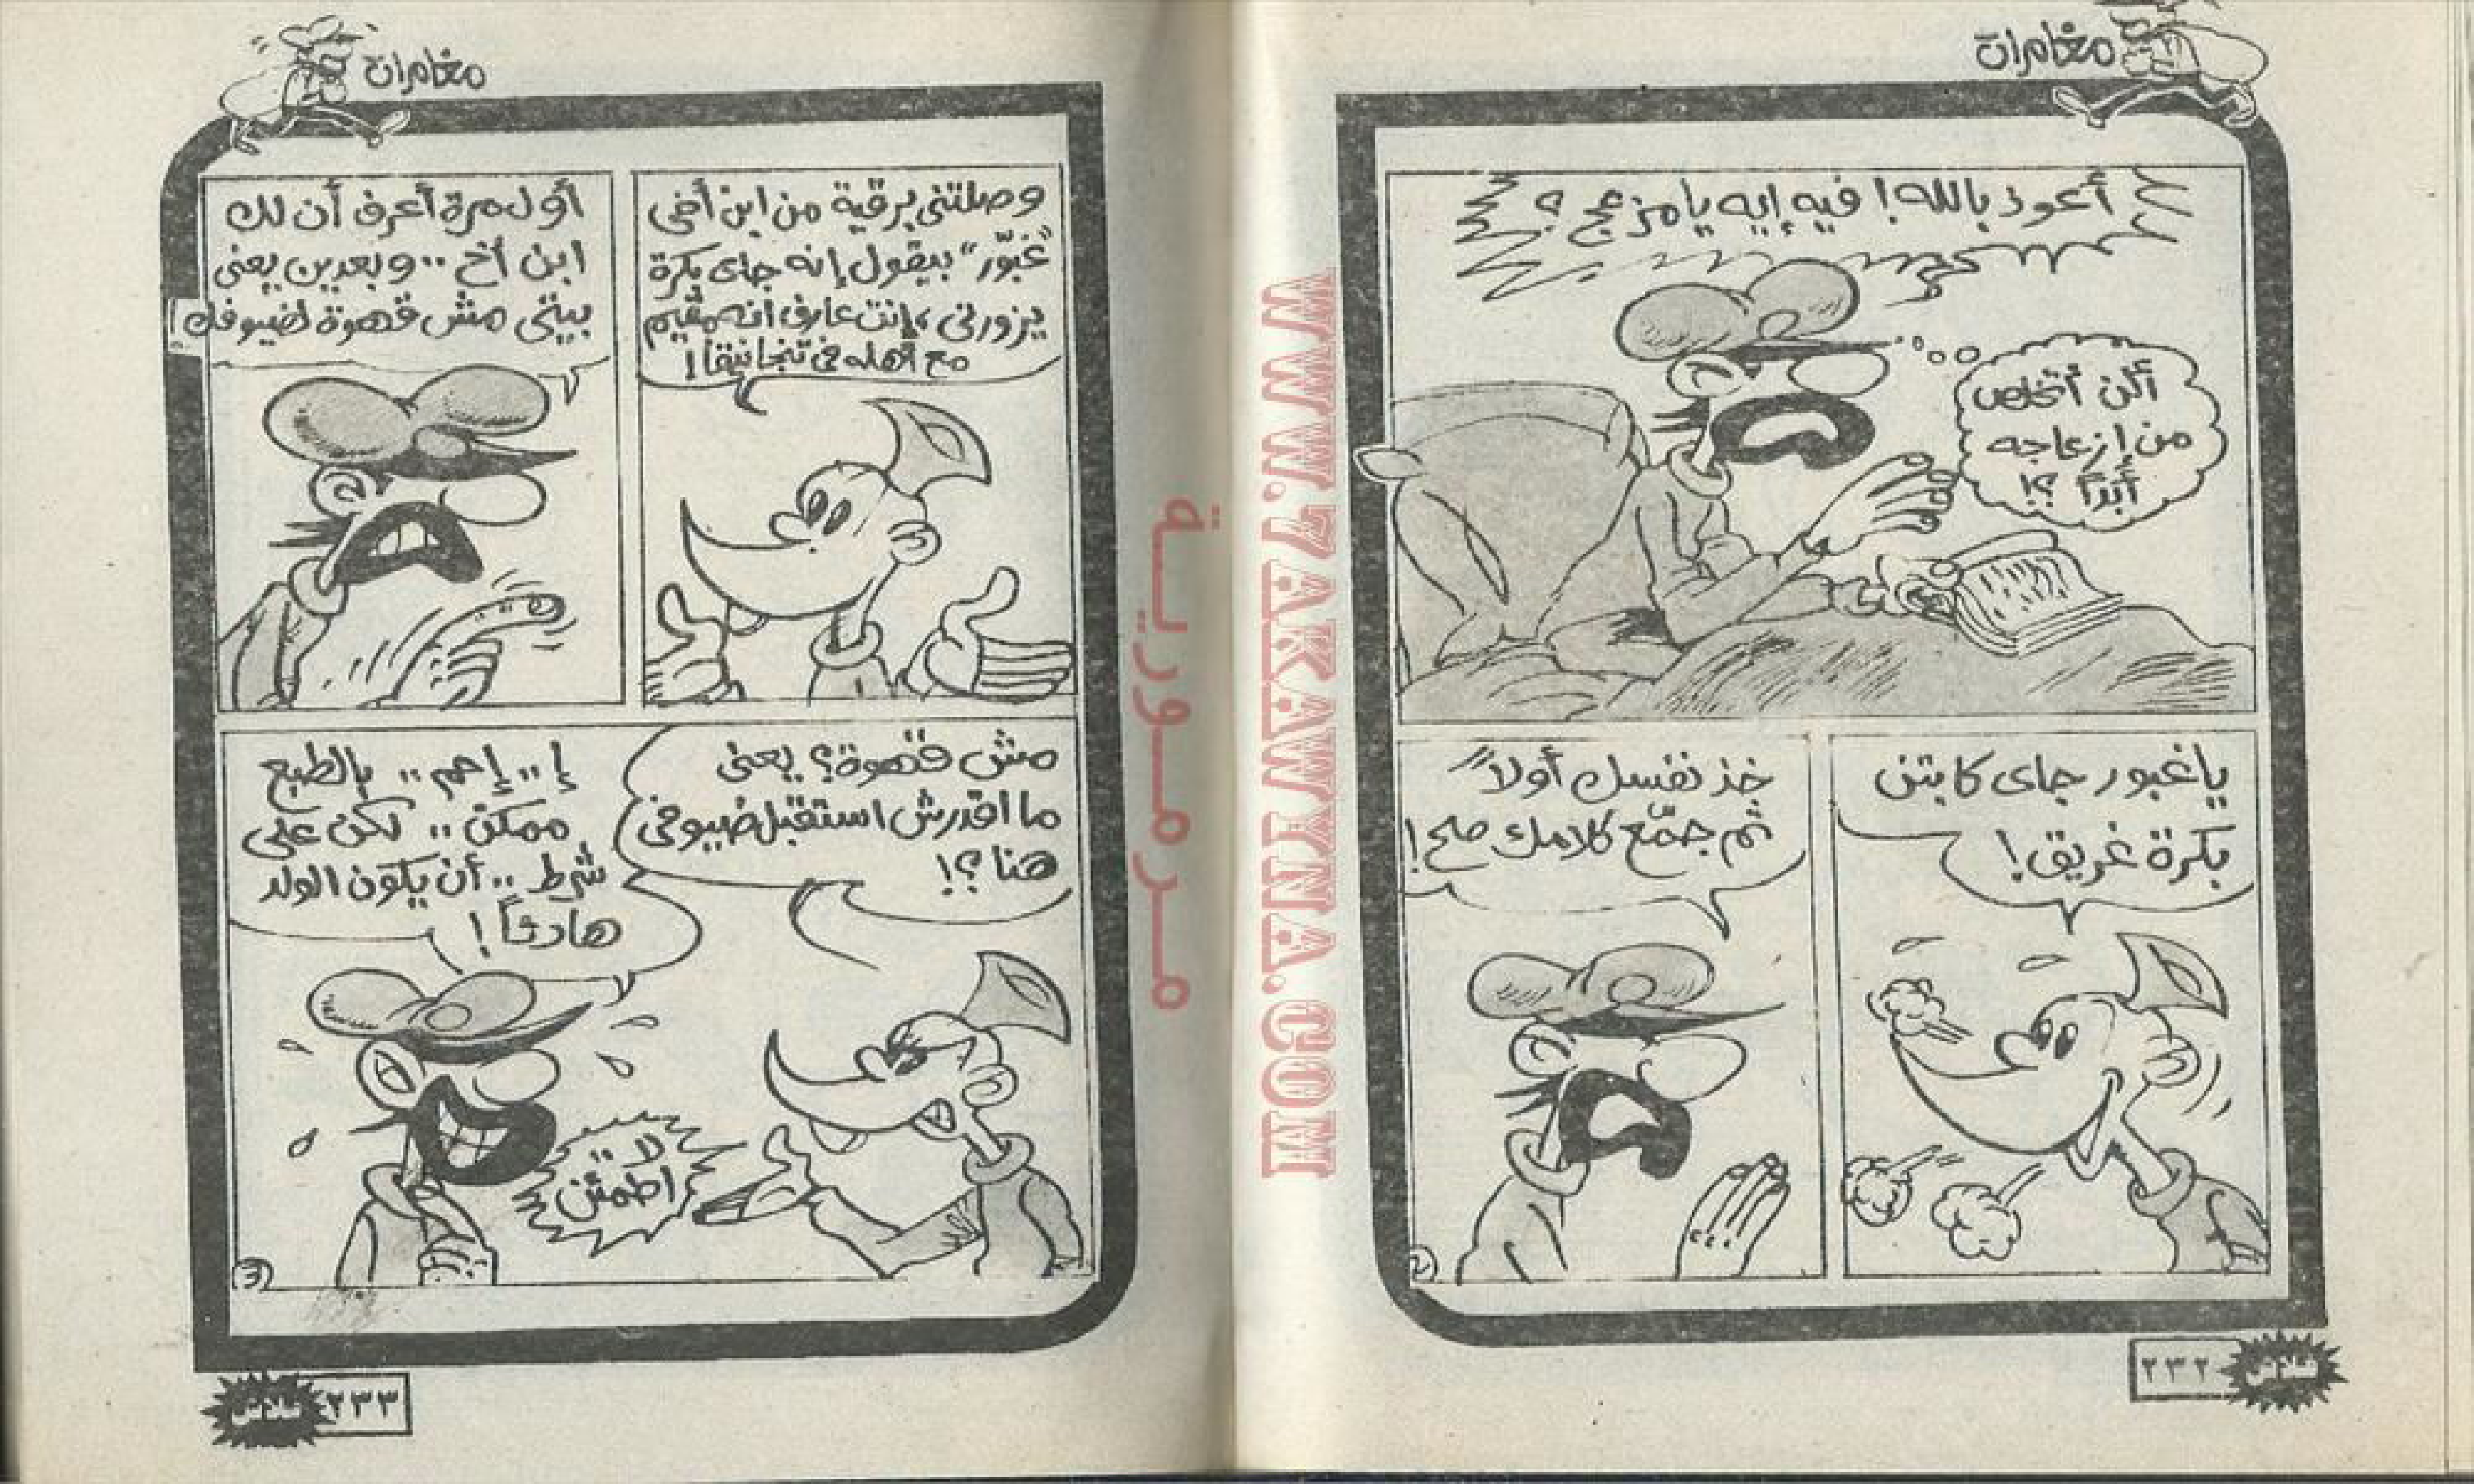 مغامرات
أعوذ بالله! فيه إيه يا مزعج؟
ألن أتخلص
من إزعاجه
أبدًا؟!
يا غبور جاى كابتن
بكرة غريق!
خذ نفسك أولاً
ثم جمّع كلامك صح!
٢
٢٣٢
فلاش
WWW.7AKAWITNA.COM
مرمورية
مغامرات
وصلتنى برقية من ابن أخى
"غبّور" بيقول إنه جاى بكرة
يزورنى، إنت عارف انه مقيم
مع أهله فى تنجانيقا!
أول مرة أعرف أن لك
ابن أخ .. وبعدين يعنى
بيتى مش قهوة لضيوفك!
مش قهوة؟ يعنى
ما اقدرش استقبل ضيوفى
هنا؟!
إ .. إحم .. بالطبع
ممكن .. لكن على
شرط .. أن يكون الولد
هادئاً!
لا ..
اطمئن
٣
٢٣٣
فلاش